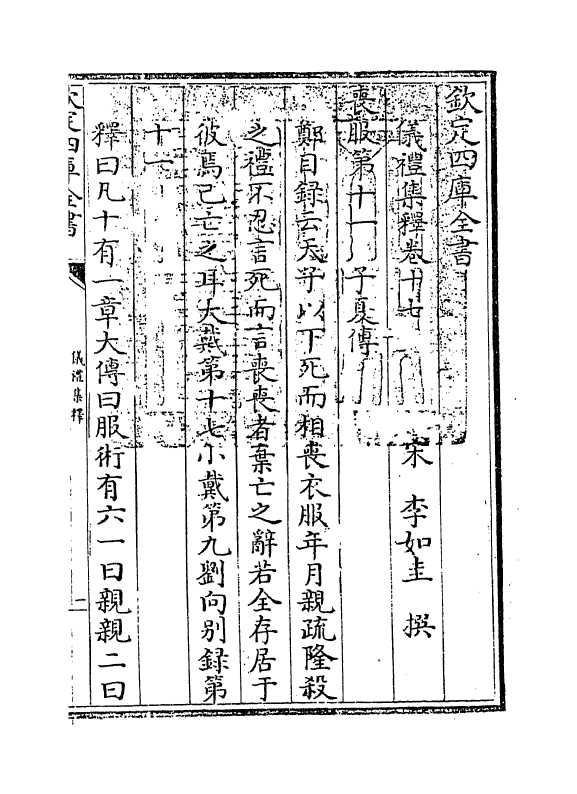 欽定四庫全書
儀禮集釋卷十七　宋　李如圭　撰
喪服第十一　子夏傳
鄭目錄云天子以下死而相喪衣服年月親疏隆殺
之禮不忍言死而言喪喪者棄亡之辭若全存居于
彼焉己亡之耳大戴第十七小戴第九劉向别錄第
十一
釋曰凡十有一章大傳曰服術有六一曰親親二曰
欽定四庫全書
儀禮集釋